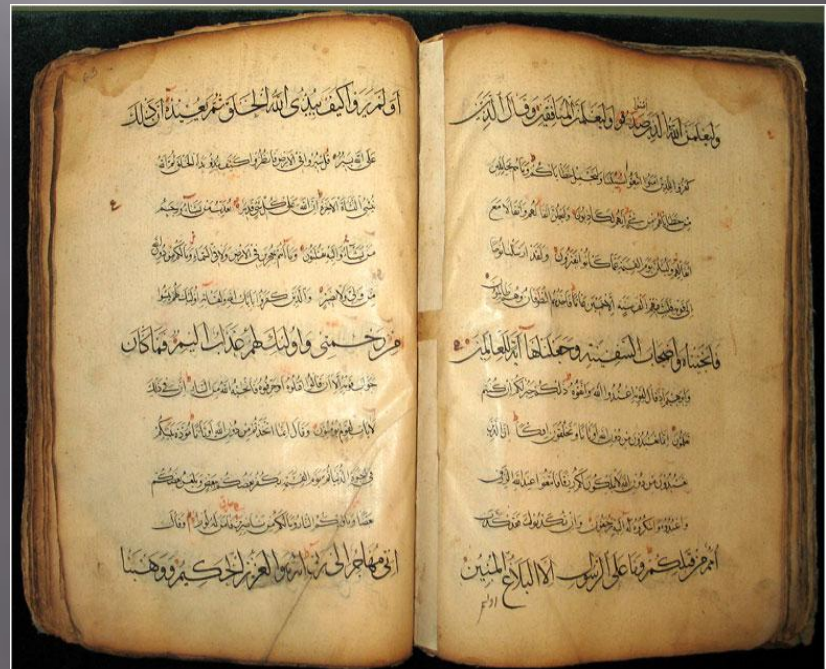 وليعلمن الله الذين صدقوا وليعلمن المنافقين وقال الذين
امنوا
كفروا للذين امنوا اتبعوا سبيلنا ولنحمل خطاياكم وما هم بحاملين
من خطاياهم من شيء انهم لكاذبون وليحملن اثقالهم واثقالا مع
اثقالهم وليسئلن يوم القيمة عما كانوا يفترون ولقد ارسلنا نوحا
الى قومه فلبث فيهم الف سنة الا خمسين عاما فاخذهم الطوفان وهم ظالمون
فانجيناه واصحاب السفينة وجعلناها آية للعالمين
وابرهيم اذ قال لقومه اعبدوا الله واتقوه ذلكم خير لكم ان كنتم
تعلمون انما تعبدون من دون الله اوثانا وتخلقون افكا ان الذين
تعبدون من دون الله لا يملكون لكم رزقا فابتغوا عند الله الرزق
واعبدوه واشكروا له اليه ترجعون وان تكذبوا فقد كذب
امم من قبلكم وما على الرسول الا البلاغ المبين
اولم
أولم يروا كيف يبدئ الله الخلق ثم يعيده ان ذلك
على الله يسير قل سيروا في الارض فانظروا كيف بدا الخلق ثم الله
ينشئ النشأة الآخرة ان الله على كل شيء قدير يعذب من يشاء ويرحم
من يشاء واليه تقلبون وما انتم بمعجزين في الارض ولا في السماء وما لكم من دون الله
من ولي ولا نصير والذين كفروا بآيات الله ولقائه اولئك يئسوا
من رحمتي واولئك لهم عذاب اليم فما كان
جواب قومه الا ان قالوا اقتلوه او حرقوه فانجيه الله من النار ان في ذلك
لآيات لقوم يؤمنون وقال انما اتخذتم من دون الله اوثانا مودة بينكم
في الحيوة الدنيا ثم يوم القيمة يكفر بعضكم ببعض ويلعن بعضكم
بعضا ومأويكم النار وما لكم من ناصرين فآمن له لوط وقال
انى مهاجر الى ربى انه هو العزيز الحكيم ووهبنا